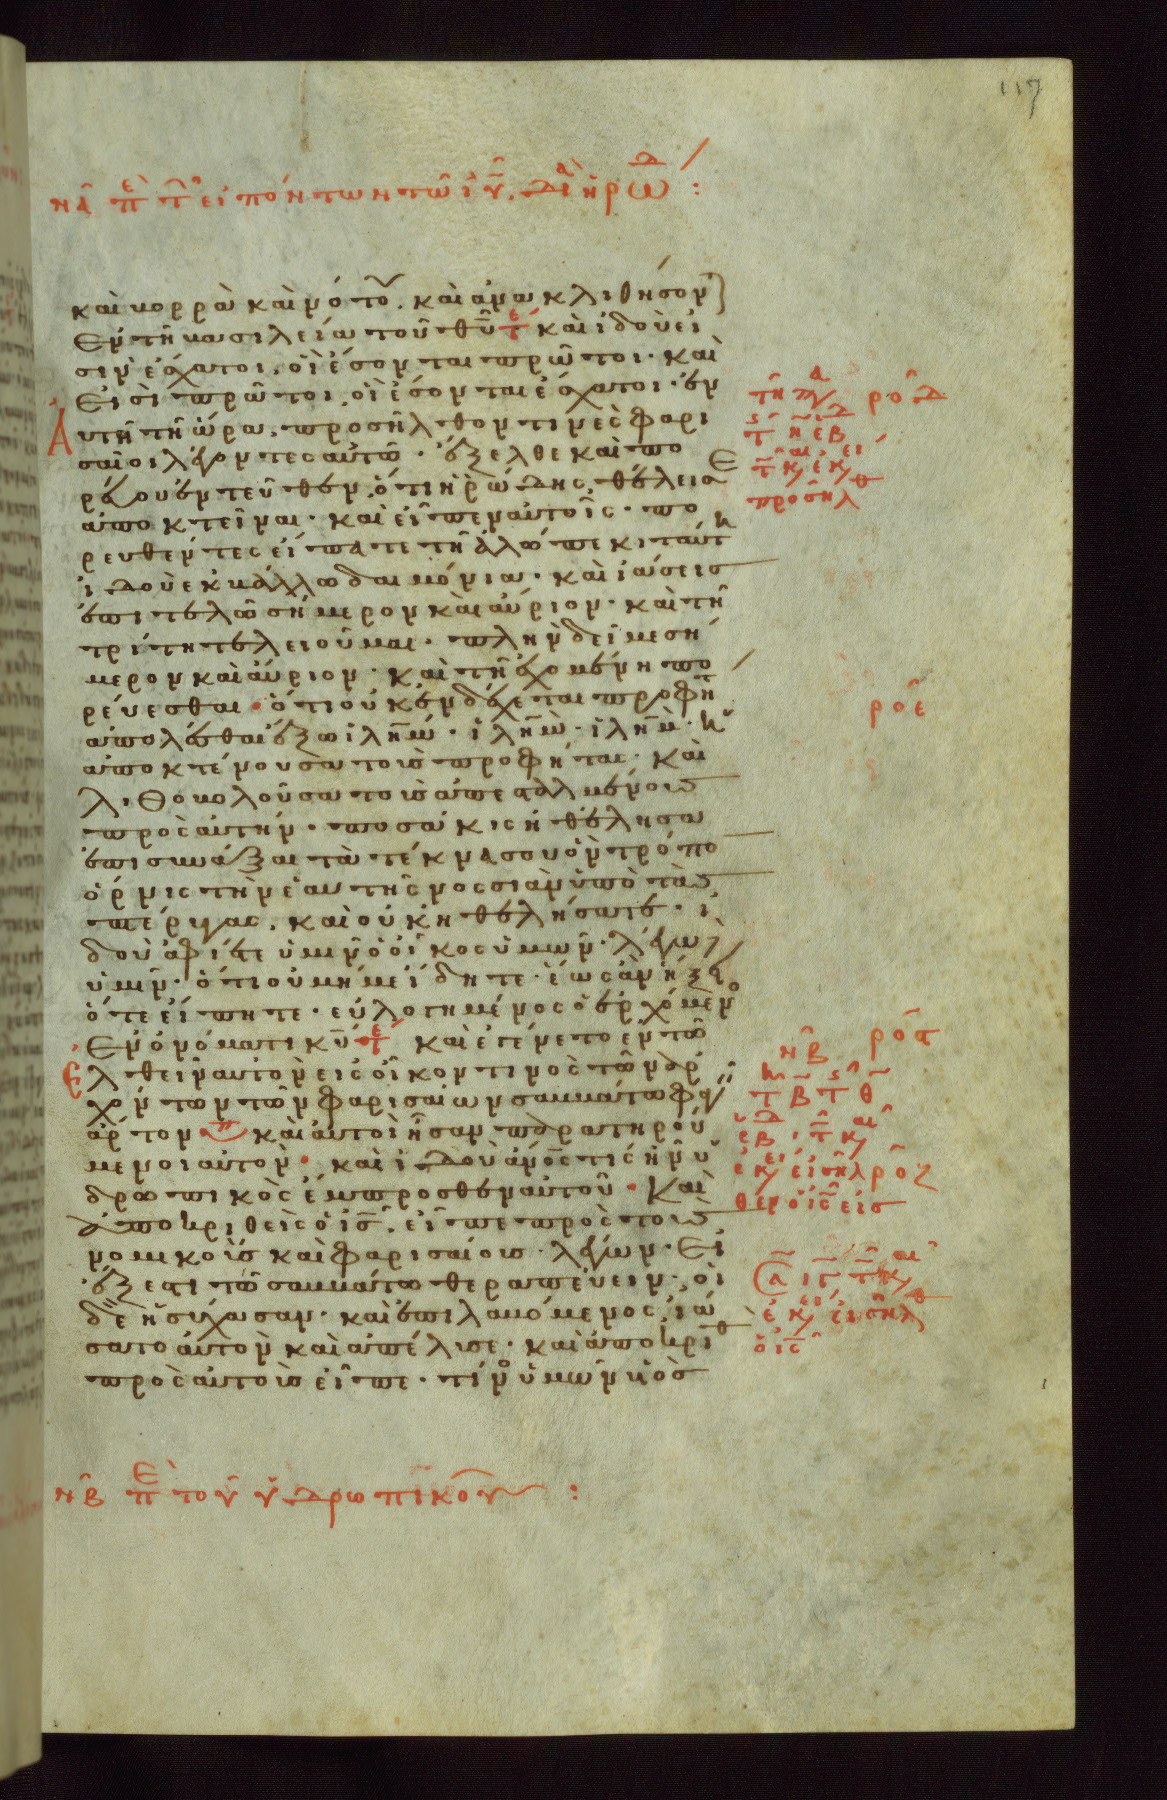 117
να πε τ ειπόντων τῶ ιῦ δια ηρωδ :
καὶ βορρᾶ καὶ νότου. καὶ ἀνακλιθήσον
ἐν τῆ βασιλεία τοῦ θῦ τε καὶ ἰδοὺ εἰ
σὶν ἔσχατοι, οἳ ἔσονται πρῶτοι· καὶ
εἰσὶ πρῶτοι, οἳ ἔσονται ἔσχατοι· ἐν
αυτῆ τῆ ὥρα, προσῆλθον τινὲς φαρι
σαῖοι λέγοντες αὐτῶ· ἔξελθε καὶ πο
ρεύου ἐντεῦθεν, ὅτι ἡρώδης θέλει σε
ἀποκτεῖναι· καὶ εἶπεν αὐτοῖς· πο
ρευθέντες εἴπατε τῆ ἀλώπεκι ταύτη
ἰδοὺ ἐκβάλλω δαιμόνια· καὶ ἰάσεις
ἐπιτελῶ σήμερον καὶ αὔριον· καὶ τῆ
τρίτη τελειοῦμαι· πλὴν δεῖ με σή
μερον καὶ αὔριον· καὶ τῆ ἐχομένη πο
ρεύεσθαι· ὅτι οὐκ ἐνδέχεται προφήτ
ἀπολέσθαι ἔξω ἱλημ· ἱλημ· ἱλημ· ἡ
ἀποκτένουσα τοὺς προφήτας· καὶ
λιθοβολοῦσα τοὺς ἀπεσταλμένους
πρὸς αὐτήν· ποσάκις ἠθέλησα
ἐπισυνάξαι τὰ τέκνα σου ὃν τρόπο
ὄρνις τὴν ἑαυτῆς νοσσιὰν ὑπὸ τὰς
πτέρυγας, καὶ οὐκ ἠθελήσατε· ἰ
δοὺ ἀφίεται ὑμῖν ὁ οἶκος ὑμῶν· λέγω
ὑμῖν· ὅτι οὐ μή με ἴδητε· ἕως ἂν ἥξη
ὅτε εἴπητε· εὐλογημένος ὁ ἐρχόμενο
ἐν ὀνόματι κυ τε καὶ ἐγένετο ἐν τῶ
ἐλθεῖν αὐτὸν εἰς οἶκον τινὸς τῶν ἀρ
χόντων τῶν φαρισαίων σαββάτω φαγ
ἄρτον καὶ αὐτοὶ ἦσαν παρατηρού
μενοι αὐτόν· καὶ ἰδοὺ ἄνος τις ἦν ὑ
δρωπικὸς ἔμπροσθεν αὐτοῦ· καὶ
ἀποκριθεὶς ὁ ις, εἶπε πρὸς τοὺς
νομικοὺς καὶ φαρισαίους· λέγων· εἰ
ἔξεστι τῶ σαββάτω θεραπεύειν· οἱ
δὲ ἡσύχασαν· καὶ ἐπιλαβόμενος ἰά
σατο αὐτὸν καὶ ἀπέλυσε· καὶ ἀποκριθ
πρὸς αὐτοὺς εἶπε· τίνος ὑμῶν υἱὸς
νβ πε τοῦ ὑδρωπικοῦ :
ροδ
προσῆλθ
ροε
νβ
ροσ
ροζ
ὁ ις εἰς
ὁ ις